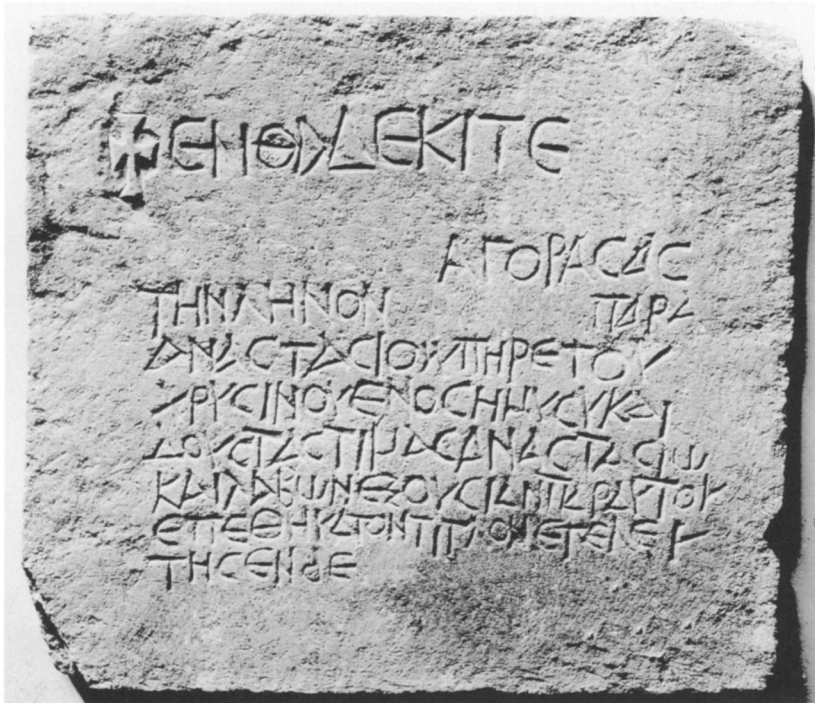 ✝ ΕΝΘΑΔΕΚΙΤΕ
ΑΓΟΡΑCΑC
ΤΗΝΛΗΝΟΝ ΠΑΡΑ
ΑΝΑCΤΑCΙΟΥΥΠΗΡΕΤΟΥ
ΧΡΥCΙΝΟΥΕΝΟCΗΜΥCΥΚΑΙ
ΔΟΥCΤΑCΤΙΜΑCΑΝΑCΤΑCΙΩ
ΚΑΙΛΑΒΩΝΕΞΟΥCΙΑΝΠΑΡΑΥΤΟΥ
ΕΠΕΘΗΚΑΤΟΝΤΙΤΛΟΝΕΤΕΛΕΥ
ΤΗCΕΝΔΕ